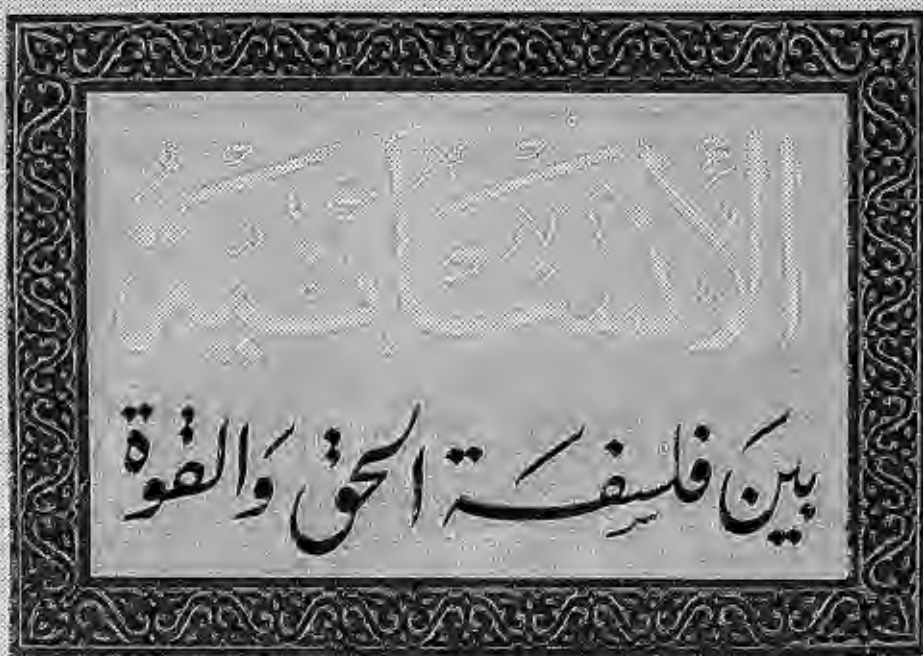 الإنسَانيّة
بينَ فلسِفَة الحق وَالقوة